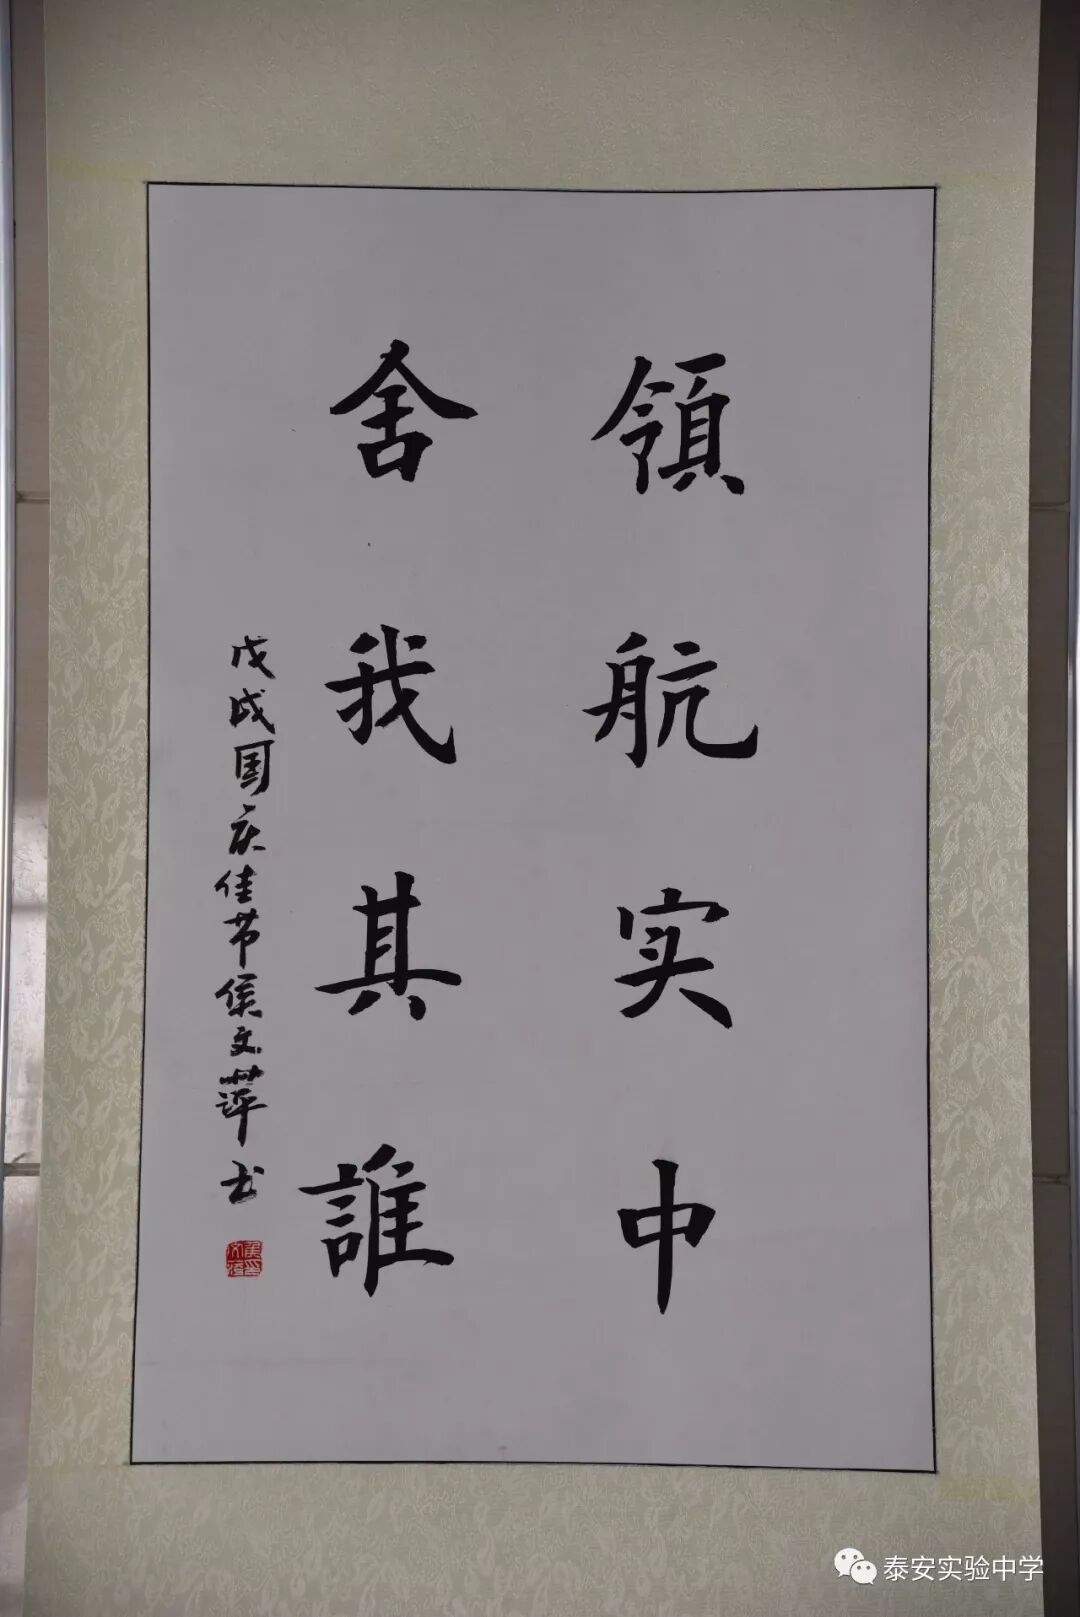 領航实中
舍我其誰
戊戌国庆佳节侯文萍书
泰安实验中学